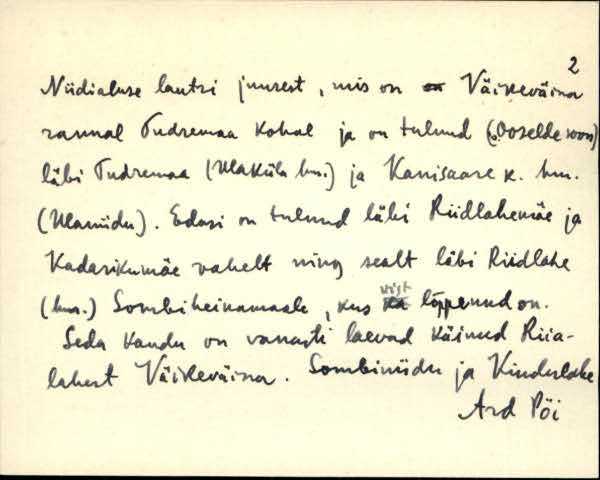 2
Niidialuse lautri juurest, mis on Väikeväina
rannal Tudremaa kohal ja on tulnud (Ooselde soon)
läbi Tudremaa (Ulaküla hm.) ja Kanisaare k. hm.
(Ulaniidu). Edasi on tulnud läbi Riidlahemäe ja
Kadarikumäe vahelt ning sealt läbi Riidlahe
(hm.) Sombiheinamaale, kus vist lõppenud on.
Seda kaudu on vanasti laevad käinud Riia-
lahest Väikeväina. Sombiniidu ja Kinderlahe
Ard Pöi